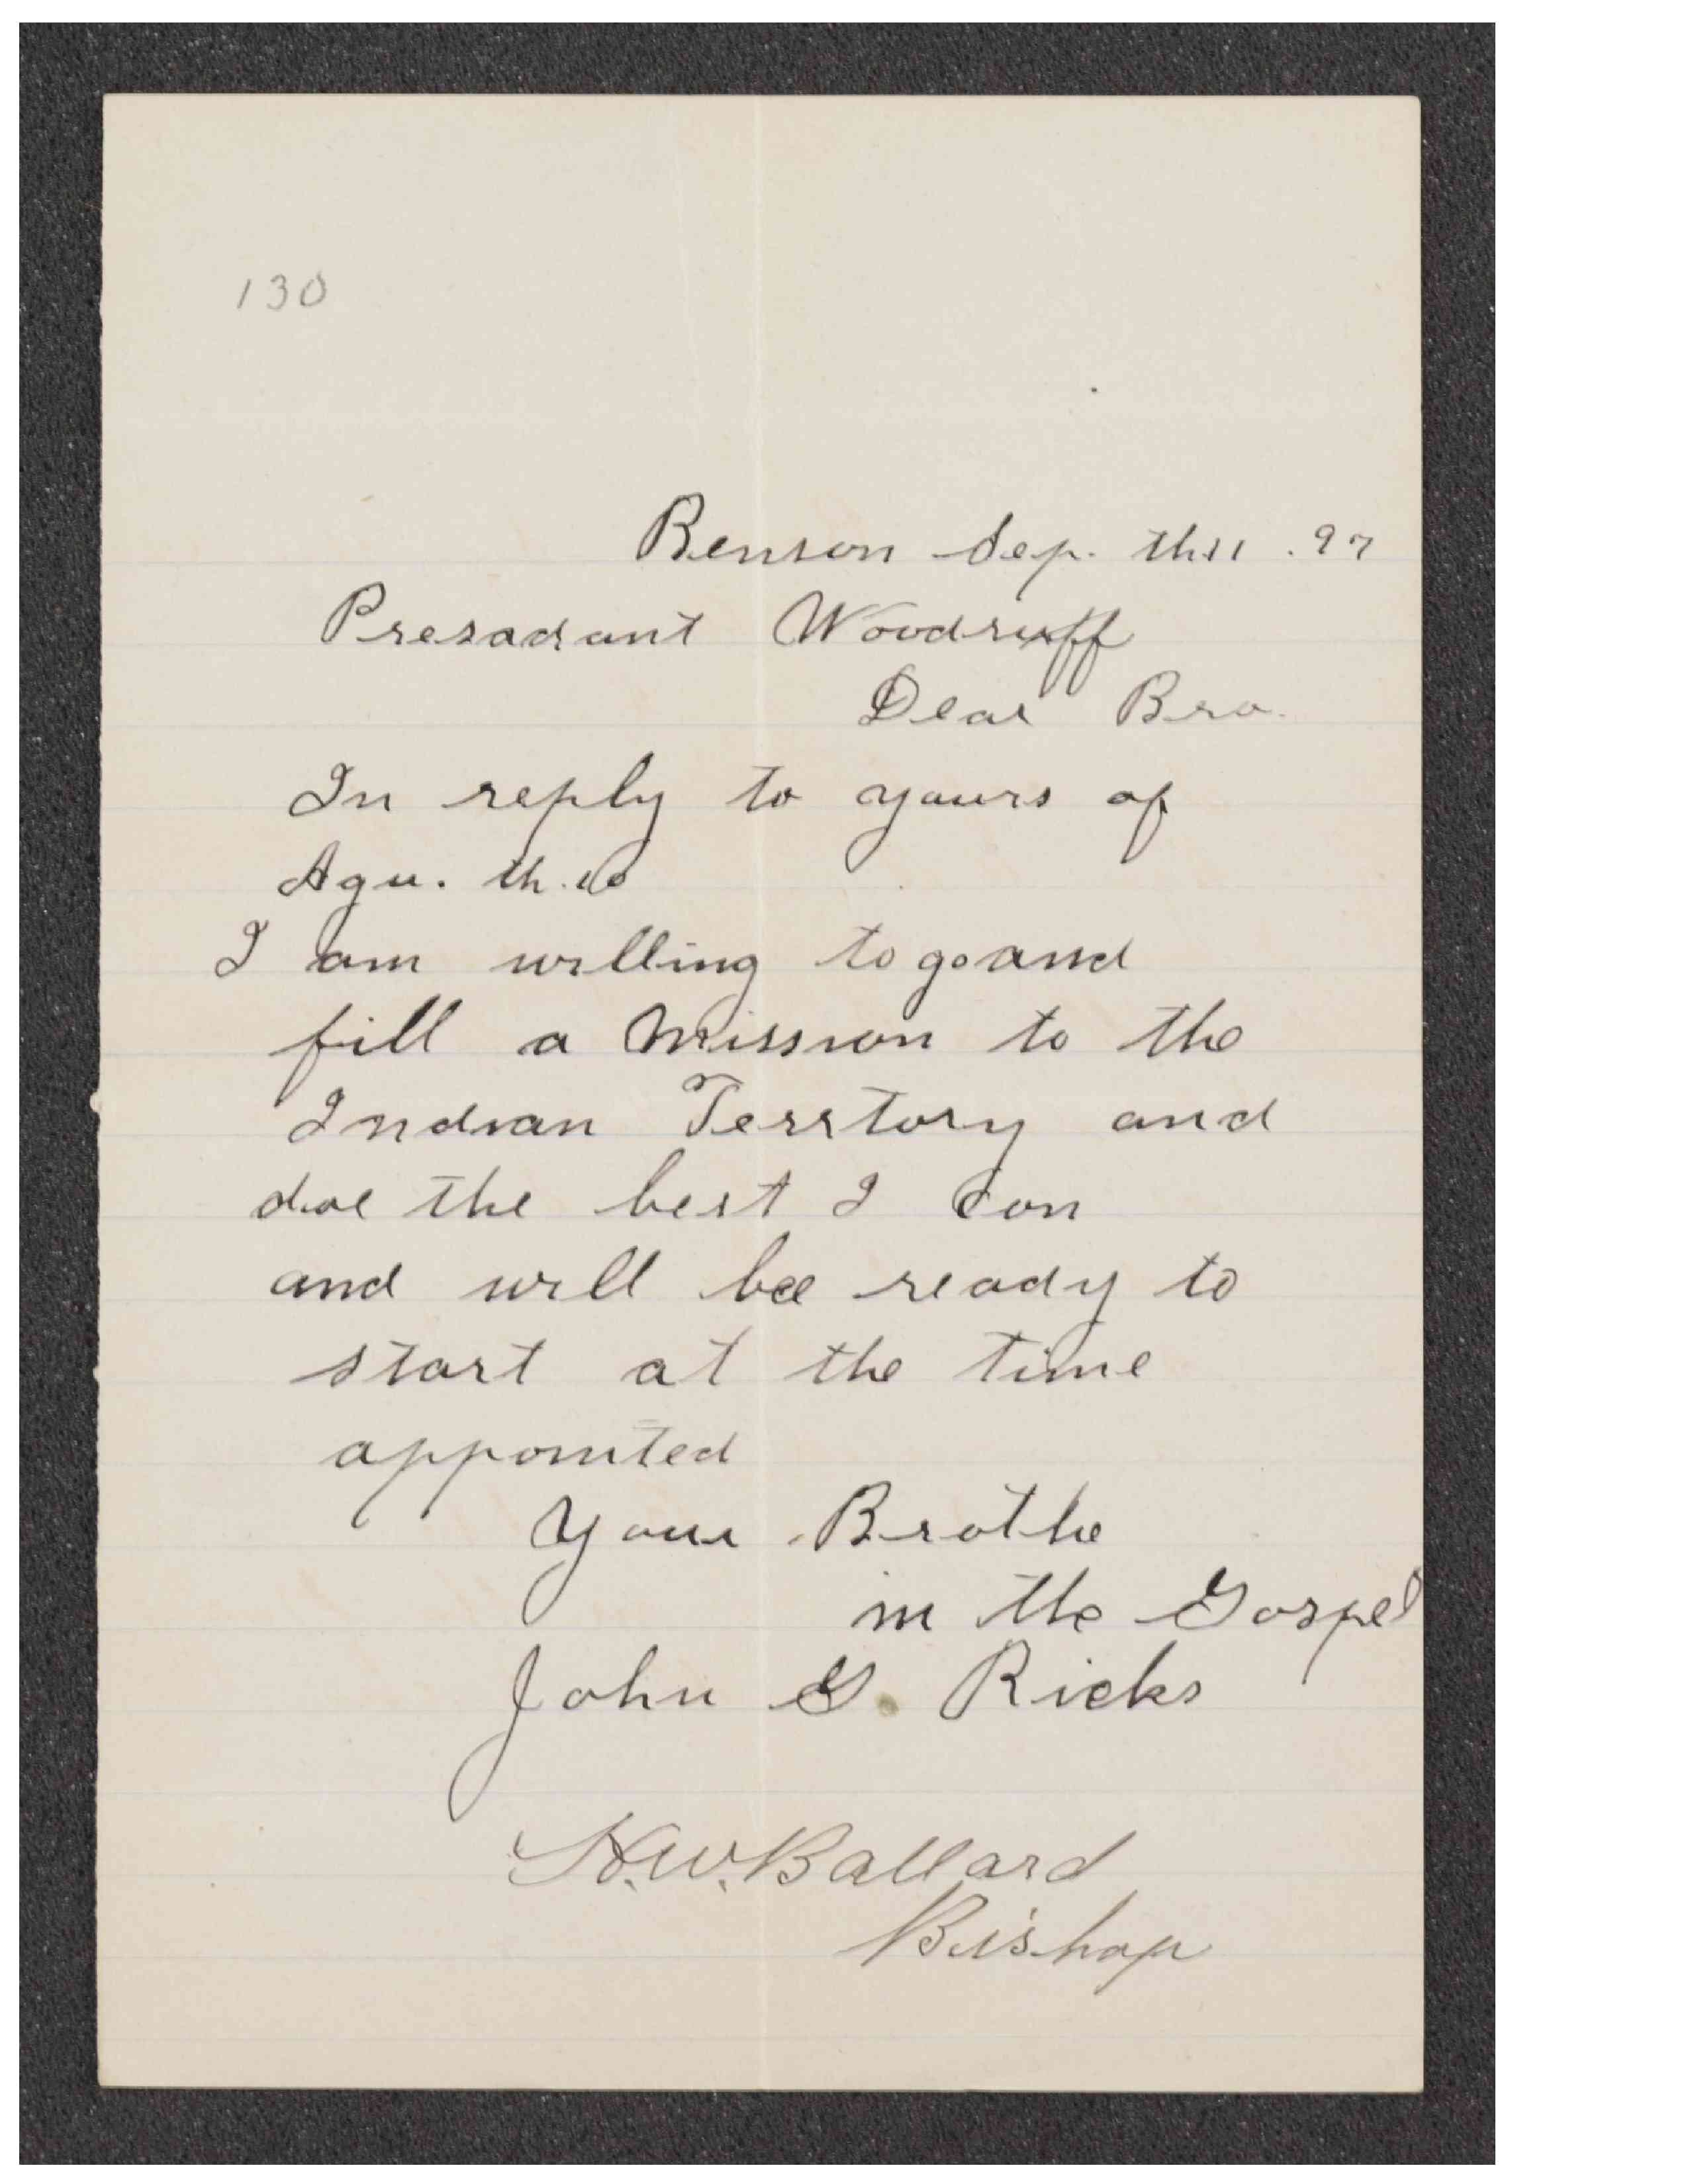 130
Benson Sep. th 11 .97
Presadant Woodruff
Dear Bro.
In reply to yours of
Agu. th.
I am willing to go and
fill a Mission to the
Indian Terrtory and
doe the best I con
and will bee ready to
start at the time
appointed
Your Brothe
in the Gospel
John G. Ricks
H.W. Ballard
Bishop